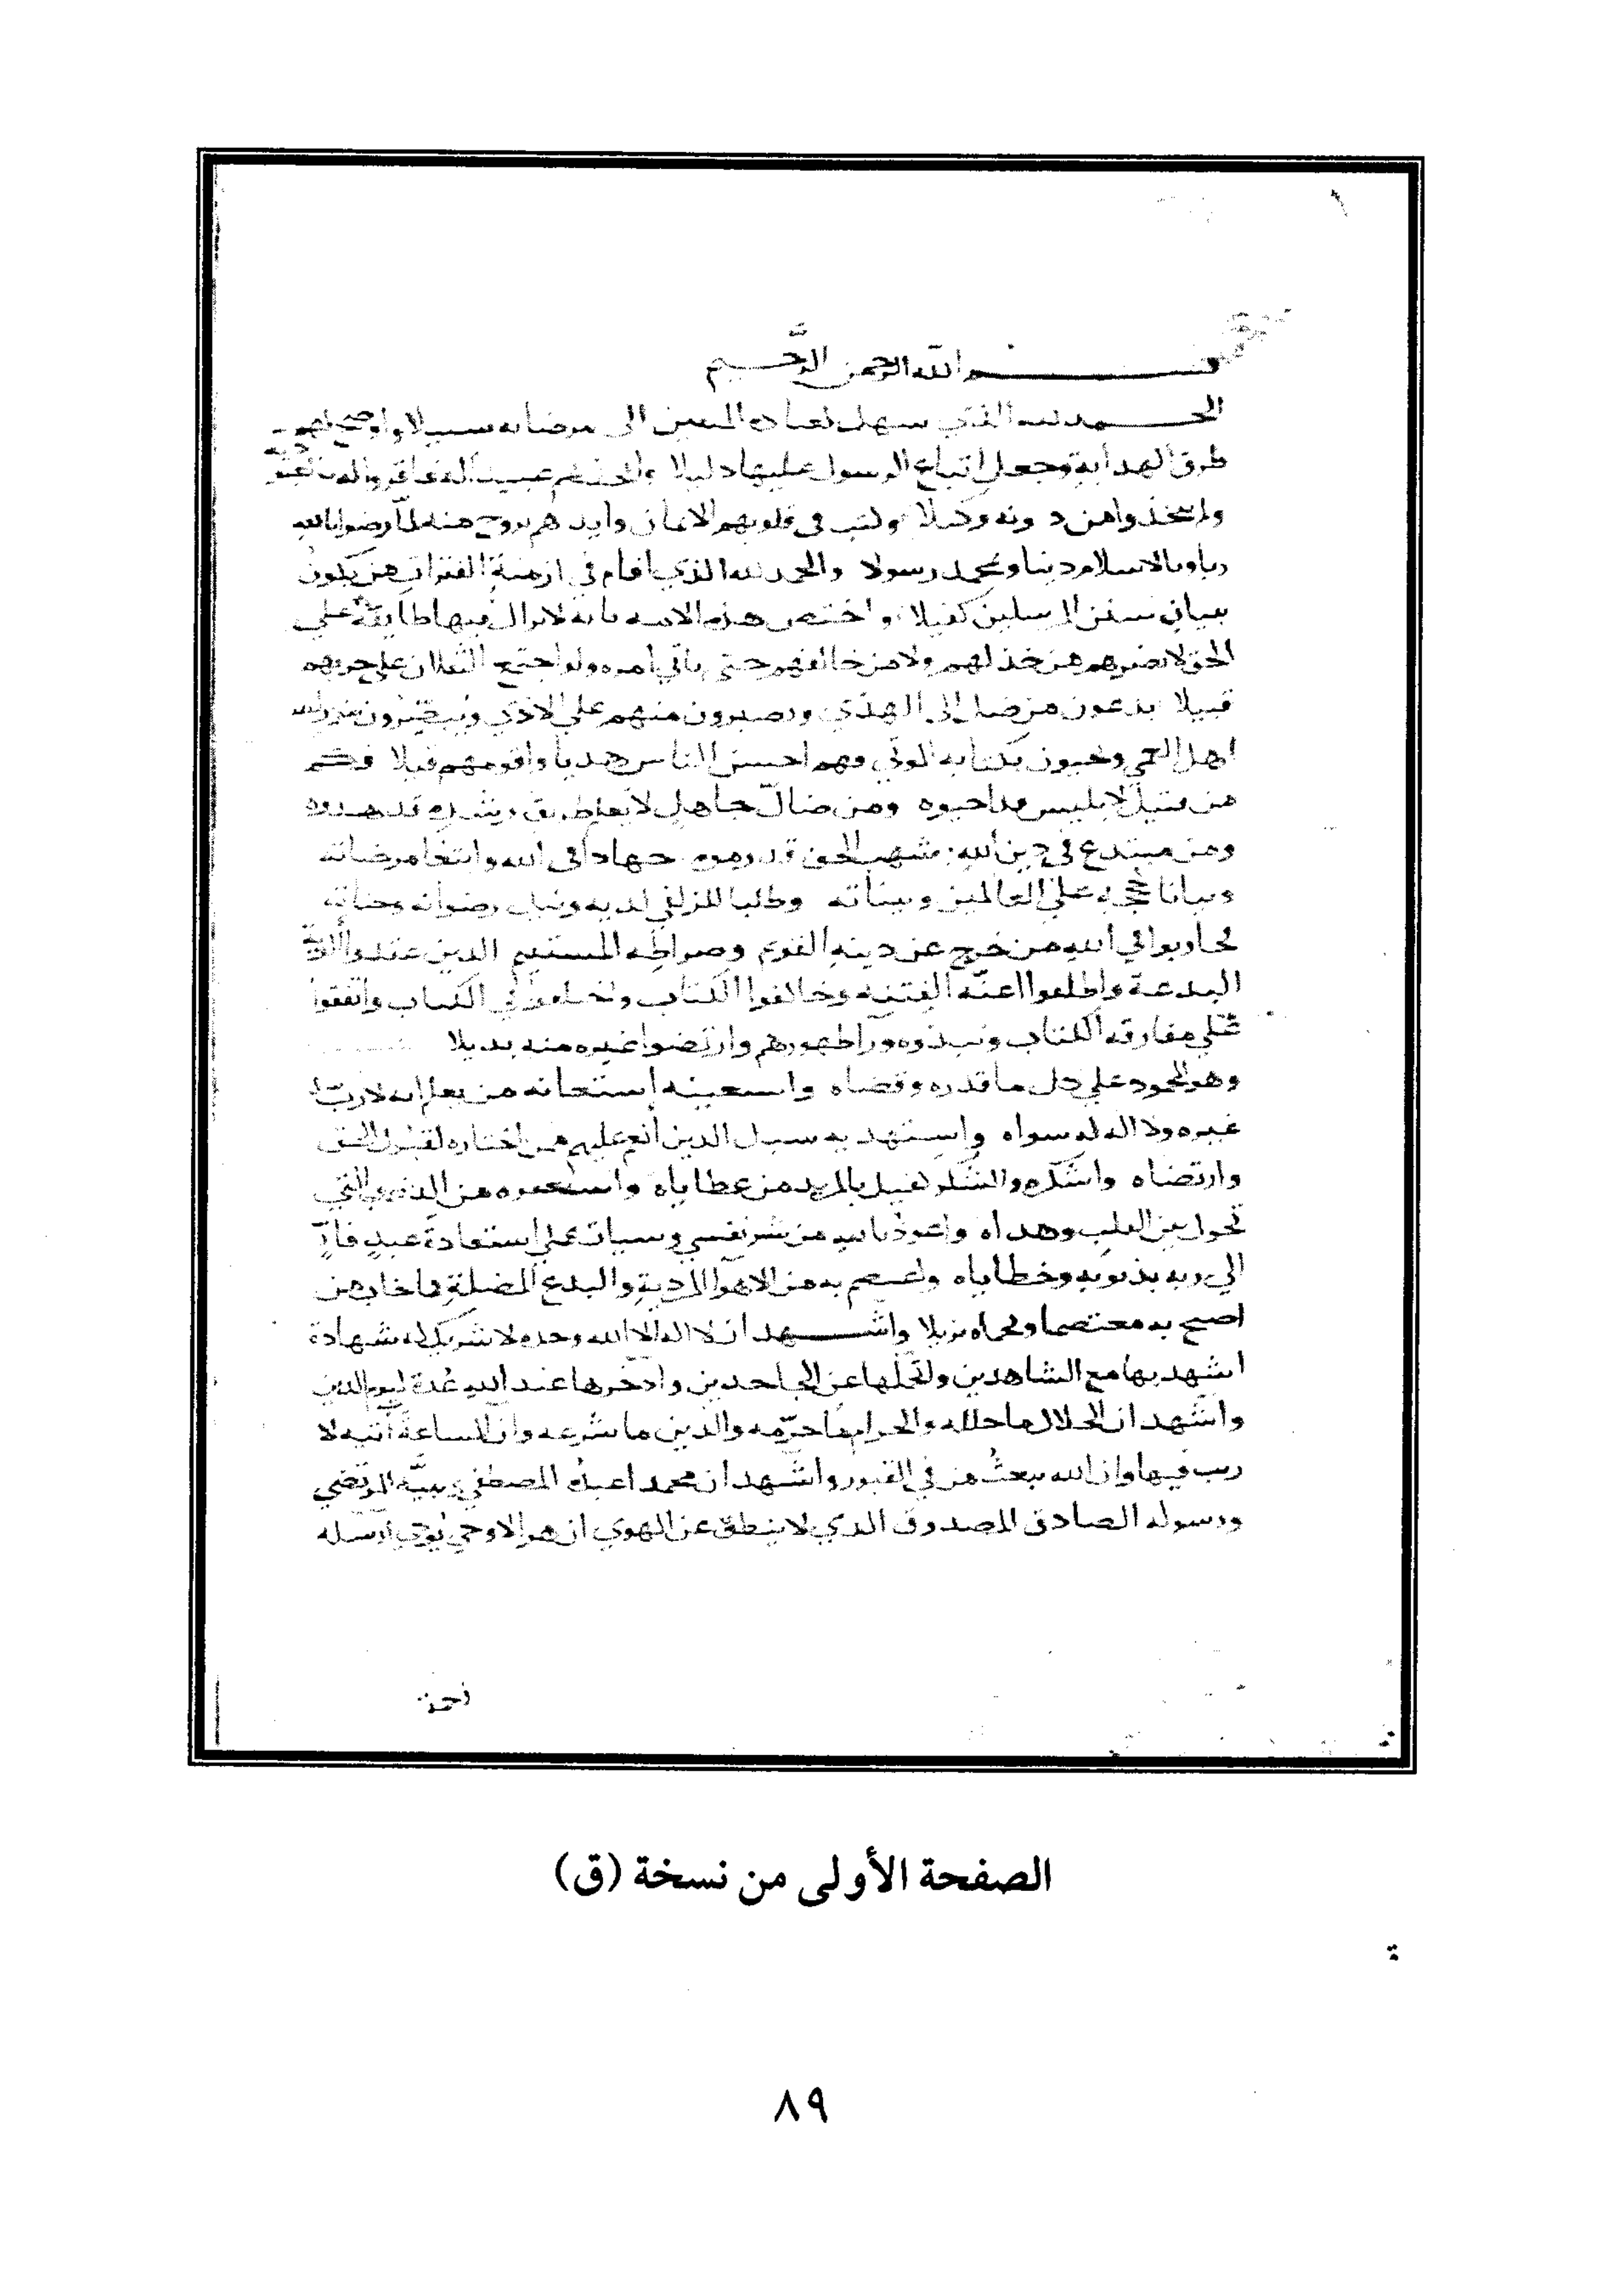 بسم الله الرحمن الرحيم
الحمد لله الذي سهل لعباده المتقين الى مرضاته سبيلا واوضح لهم
طرق الهداية وجعل اتباع الرسول عليها دليلا واتخذهم عبيدا له فاقروا له
ولم يتخذوا من دونه وكيلا وكتب في قلوبهم الايمان وايدهم بروح منه لما رضوا بالله
ربا وبالاسلام دينا وبمحمد رسولا والحمد لله الذي اقام في ازمنة الفترات من يكون
ببيان سنن المرسلين كفيلا واختص هذه الامه بانه لا يزال فيها طايفة على
الحق لا يضرهم من خذلهم ولا من خالفهم حتى ياتي امره ولو اجتمع الثقلان على حربهم
قبيلا يدعون من ضل الى الهدي ويصبرون منهم على الاذي ويبصرون بنور الله
اهل العمي ويحيون بكتابه الموتي فهم احسن الناس هديا واقومهم قيلا فكم
من قتيل لابليس قد احيوه ومن ضال جاهل لا يعلم طريق رشده قد هدوه
ومن مبتدع في دين الله بشهب الحق قد رموه جهادا في الله وابتغا مرضاته
وبيانا لحججه على العالمين وبيناته وطلبا للزلفي لديه ونيل رضوانه وجناته
فحاربوا في الله من خرج عن دينه القويم وصراطه المستقيم الذين عقدوا الوية
البدعة واطلقوا اعنة الفتنه وخالفوا الكتاب واختلفوا في الكتاب واتفقوا
على مفارقه الكتاب ونبذوه ورا ظهورهم وارتضوا غيره منه بديلا
وهو المحمود على كل ما قدره وقضاه واستعينه استعانه من يعلم انه لا رب
غيره ولا اله له سواه واستهديه سبيل الذين انعم عليهم ممن اختاره لقبول الحق
وارتضاه واشكره والشكر كفيل بالمزيد من عطاياه واستغفره من الذنوب التي
تحول بين القلب وهداه واعوذ بالله من شر نفسي وسيات عملي استعاذة عبد فار
الي ربه بذنوبه وخطاياه واعتصم به من الاهوا المردية والبدع المضلة فما خاب من
اصبح به معتصما وبحماه نزيلا واشهد ان لا اله الا الله وحده لا شريك له شهادة
اشهد بها مع الشاهدين واتحملها عن الجاحدين وادخرها عند الله عدة ليوم الدين
واشهد ان الحلال ما حلله والحرام ما حرمه والدين ما شرعه وان الساعة اتيه لا
ريب فيها وان الله يبعث من في القبور واشهد ان محمدا عبده المصطفي ونبيه المرتضي
ورسوله الصادق المصدوق الذي لا ينطق عن الهوي ان هو الا وحي يوحي ارسله
الصفحة الأولى من نسخة (ق)
٨٩